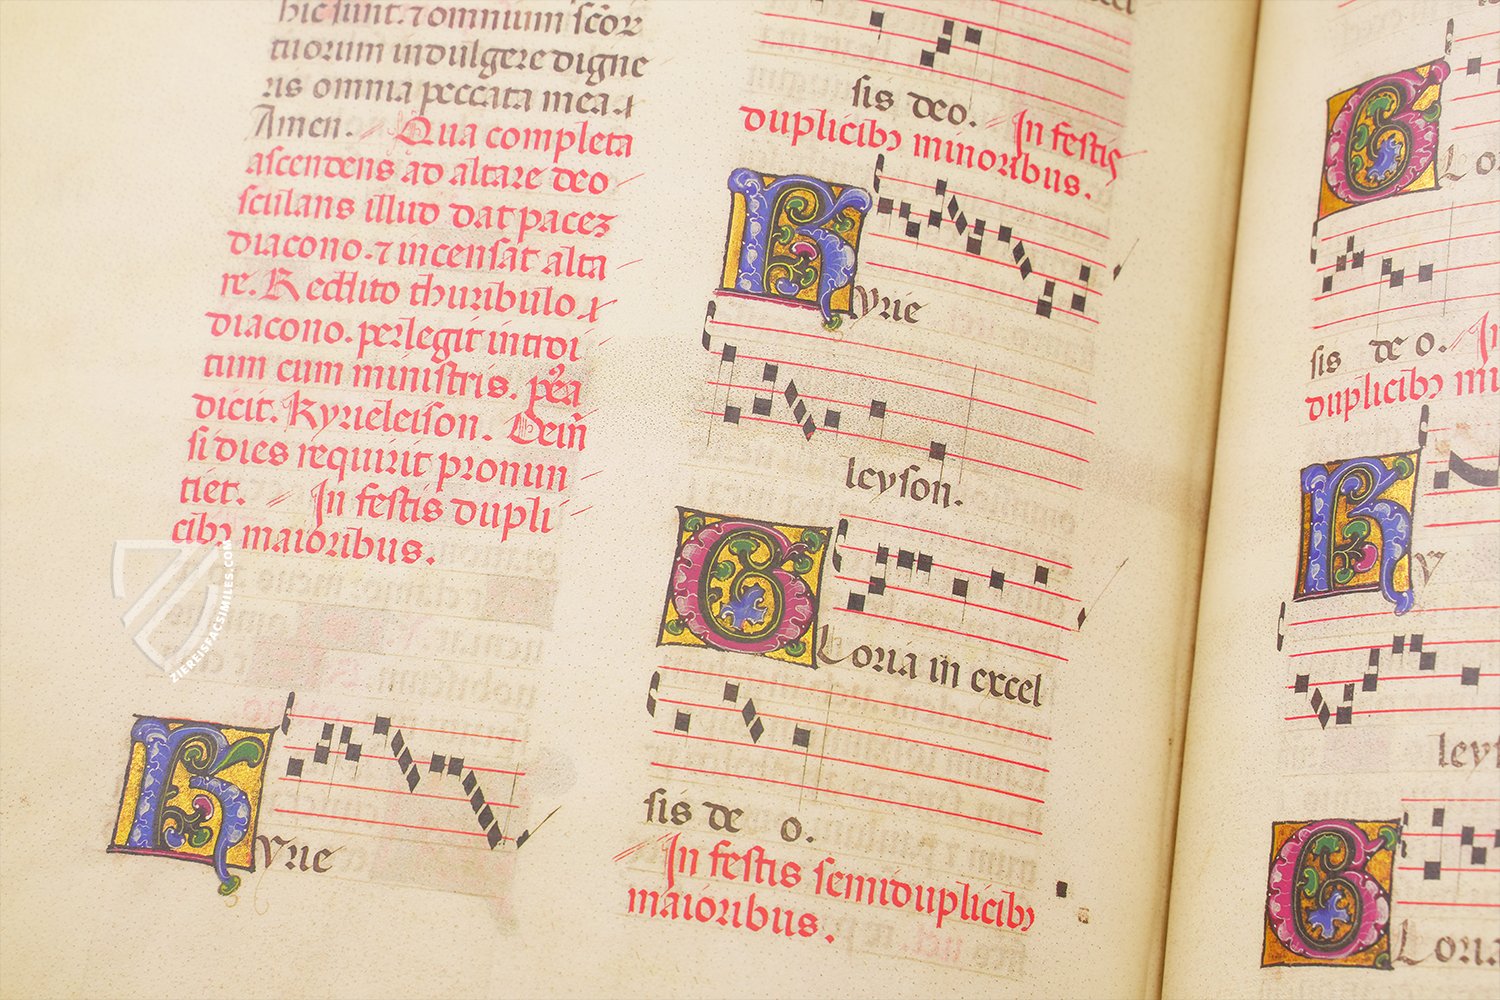 hic sunt. ⁊ omnium scōr
tuorum indulgere digne
ris omnia peccata mea.
Amen. Qua completa
ascendens ad altare deo
sculans illud dat pacez
diacono. ⁊ incensat alta
re. Reddito thuribulo
diacono. perlegit introi
tum cum ministris.
dicit. Kyrieleison. Dein̄
si dies requirit pronun
tiet. In festis dupli
cibꝫ maioribus.
Kyrie
sis deo. In festis
duplicibꝫ minoribus.
Kyrie
leyson.
Gloria in excel
sis de o.
In festis semiduplicibꝫ
maioribus.
G Lo
sis de o. In
duplicibꝫ mi
Ky
ley
Gloria
ZIEREISFACSIMILES.COM